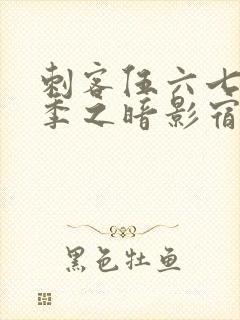 刺客伍六七
季之暗影宿
黑色牡鱼